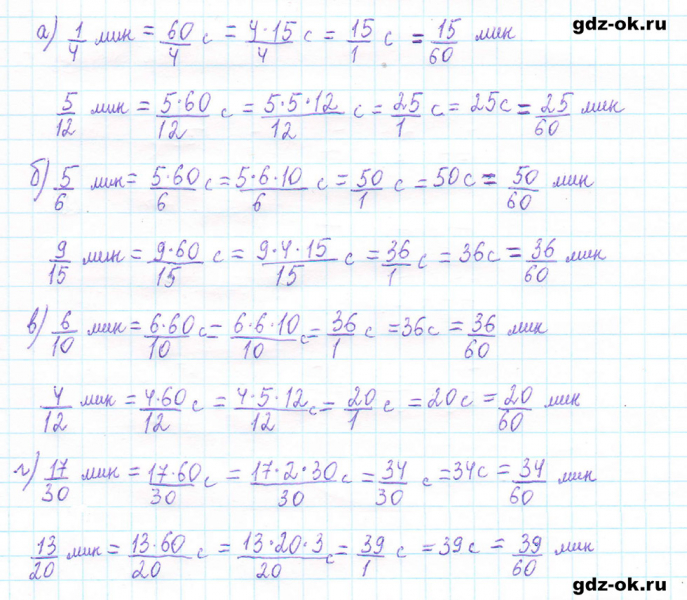 gdz-ok.ru
а) 1/4 мин = 60/4 с = 4·15/4 с = 15/1 с = 15/60 мин
5/12 мин = 5·60/12 с = 5·5·12/12 с = 25/1 с = 25с = 25/60 мин
б) 5/6 мин = 5·60/6 с = 5·6·10/6 с = 50/1 с = 50с = 50/60 мин
9/15 мин = 9·60/15 с = 9·4·15/15 с = 36/1 с = 36с = 36/60 мин
в) 6/10 мин = 6·60/10 с = 6·6·10/10 с = 36/1 с = 36с = 36/60 мин
4/12 мин = 4·60/12 с = 4·5·12/12 с = 20/1 с = 20с = 20/60 мин
г) 17/30 мин = 17·60/30 с = 17·2·30/30 с = 34/30 с = 34с = 34/60 мин
13/20 мин = 13·60/20 с = 13·20·3/20 с = 39/1 с = 39с = 39/60 мин
gdz-ok.ru